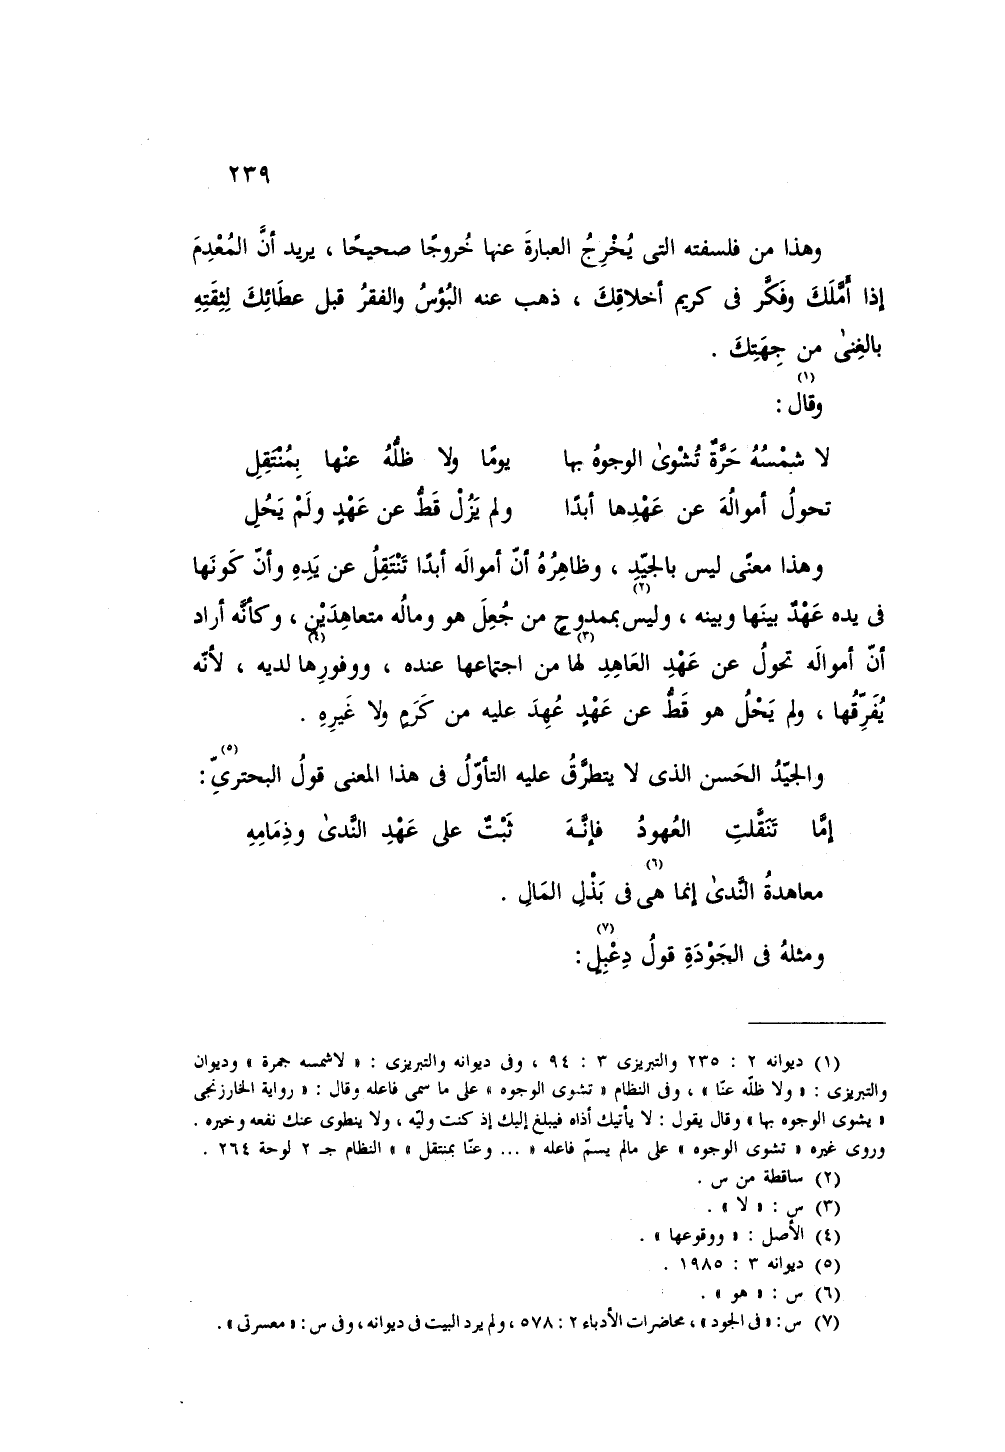 ٢٣٩
وهذا من فلسفته التى يُخْرِجُ العبارةَ عنها خُروجًا صحيحًا ، يريد أنَّ المُعْدِمَ
إذا أَمَّلَكَ وفَكَّر فى كريم أخلاقِكَ ، ذهب عنه البُؤسُ والفقرُ قبل عطائِكَ لِثِقَتِهِ
بالغِنىٰ من جِهَتِكَ .
وقال(١) :
لا شمْسُهُ حَرَّةٌ تُشْوىٰ الوجوهُ بها يومًا ولا ظلُّهُ عنْها بِمُنْتَقِلِ
تحولُ أموالُهَ عن عَهْدِها أبدًا ولم يَزُلْ قَطُّ عن عَهْدٍ ولَمْ يَحُلِ
وهذا معنًى ليس بالجيِّدِ ، وظاهِرُهُ أنّ أموالَه أبدًا تَنْتَقِلُ عن يَدِهِ وأنّ كَونَها
فى يده عَهْدٌ بينَها وبينه ، وليس(٢) بممدوحٍ من جُعِلَ هو ومالُه متعاهِدَيْنِ ، وكأنَّه أراد
أنّ أموالَه تحولُ عن عَهْدِ العَاهِدِ لها(٣) من اجتماعها عنده ، ووفورِها(٤) لديه ، لأنّه
يُفَرِّقُها ، ولم يَحْلُ هو قَطُّ عن عَهْدٍ عُهِدَ عليه من كَرَمٍ ولا غَيرِهِ .
والجيّدُ الحَسن الذى لا يتطرَّقُ عليه التأوّلُ فى هذا المعنى قولُ البحترىّ(٥) :
إمَّا تَنَقَّلتِ العُهودُ فإنَّـهَ ثَبْتٌ على عَهْدِ النَّدىٰ وذِمَامِهِ
معاهدةُ النَّدىٰ إنما هى(٦) فى بَذْلِ المَالِ .
ومثلهُ فى الجَوْدَةِ(٧) قولُ دِعْبِلٍ :
(١) ديوانه ٢ : ٢٣٥ والتبريزى ٣ : ٩٤ ، وفى ديوانه والتبريزى : « لاشمسه جمرة » وديوان
والتبريزى : « ولا ظلّه عنّا » ، وفى النظام « تشوى الوجوه » على ما سمى فاعله وقال : « رواية الخارزنجى
« يشوى الوجوه بها » وقال يقول : لا يأتيك أذاه فيبلغ إليك إذ كنت وليّه ، ولا ينطوى عنك نفعه وخيره .
وروى غيره « تشوى الوجوه » على مالم يسمّ فاعله « ... وعنّا بمنتقل » » النظام جـ ٢ لوحة ٢٦٤ .
(٢) ساقطة من س .
(٣) س : « لا » .
(٤) الأصل : « ووقوعها » .
(٥) ديوانه ٣ : ١٩٨٥ .
(٦) س : « هو » .
(٧) س : « فى الجود » ، محاضرات الأدباء ٢ : ٥٧٨ ، ولم يرد البيت فى ديوانه ، وفى س : « معسرتى » .